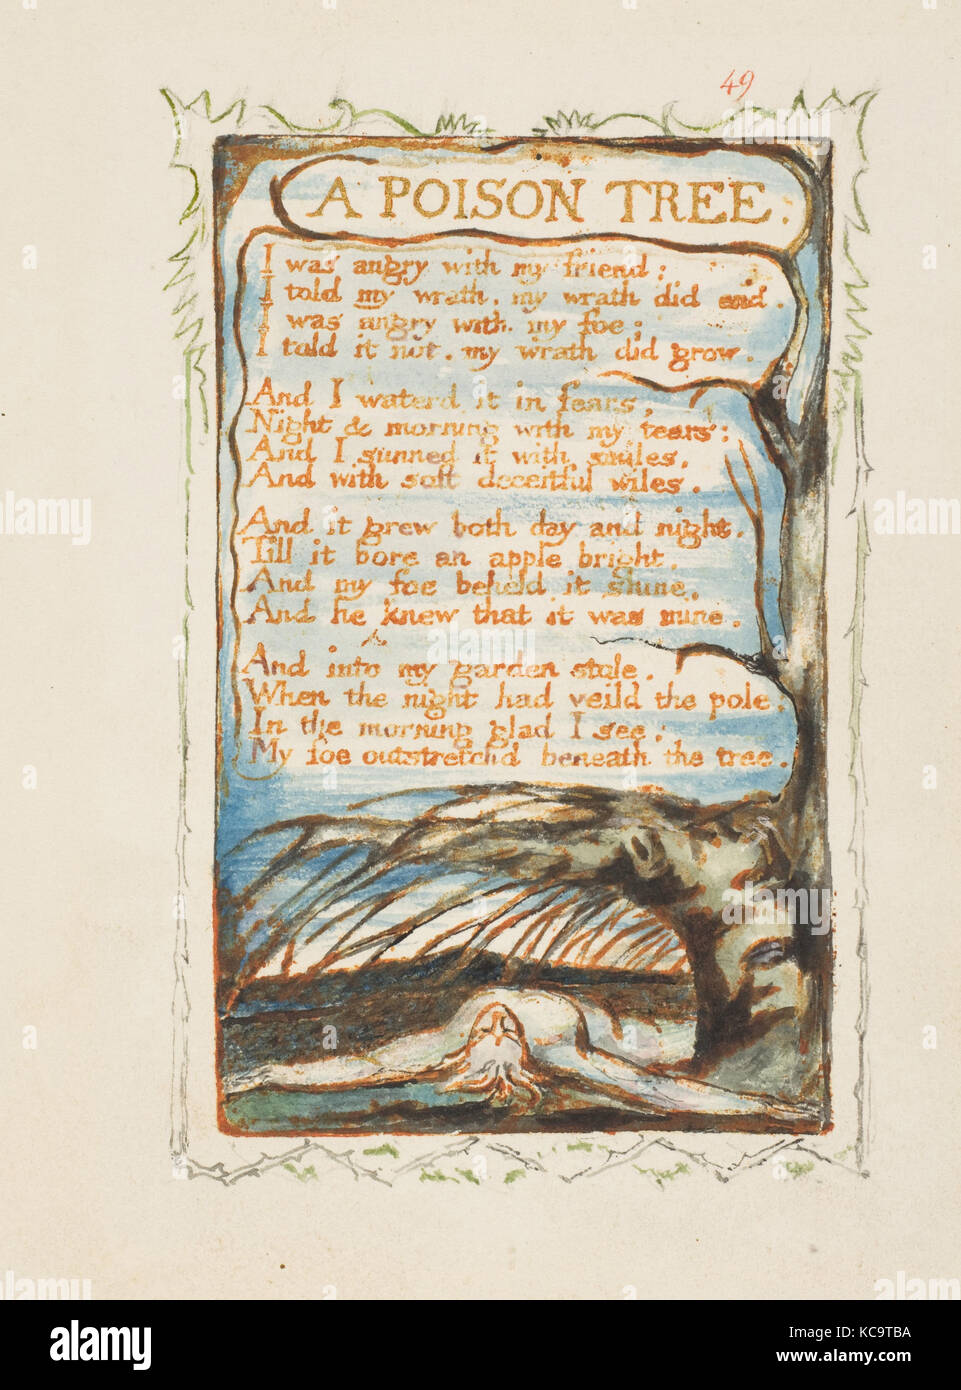 49
A POISON TREE.
I was angry with my friend:
I told my wrath. my wrath did end.
I was angry with my foe:
I told it not. my wrath did grow.
And I waterd it in fears,
Night & morning with my tears:
And I sunned it with smiles,
And with soft deceitful wiles.
And it grew both day and night.
Till it bore an apple bright.
And my foe beheld it shine.
And he knew that it was mine.
And into my garden stole.
When the night had veild the pole;
In the morning glad I see,
My foe outstretchd beneath the tree.
alamy
a
alamy
Image ID: KC9TBA
www.alamy.com